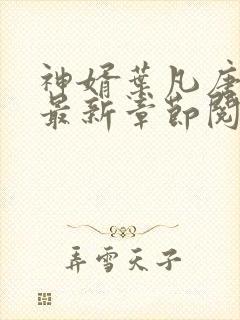 神婿葉凡唐
最新章節閱
弄雪天子